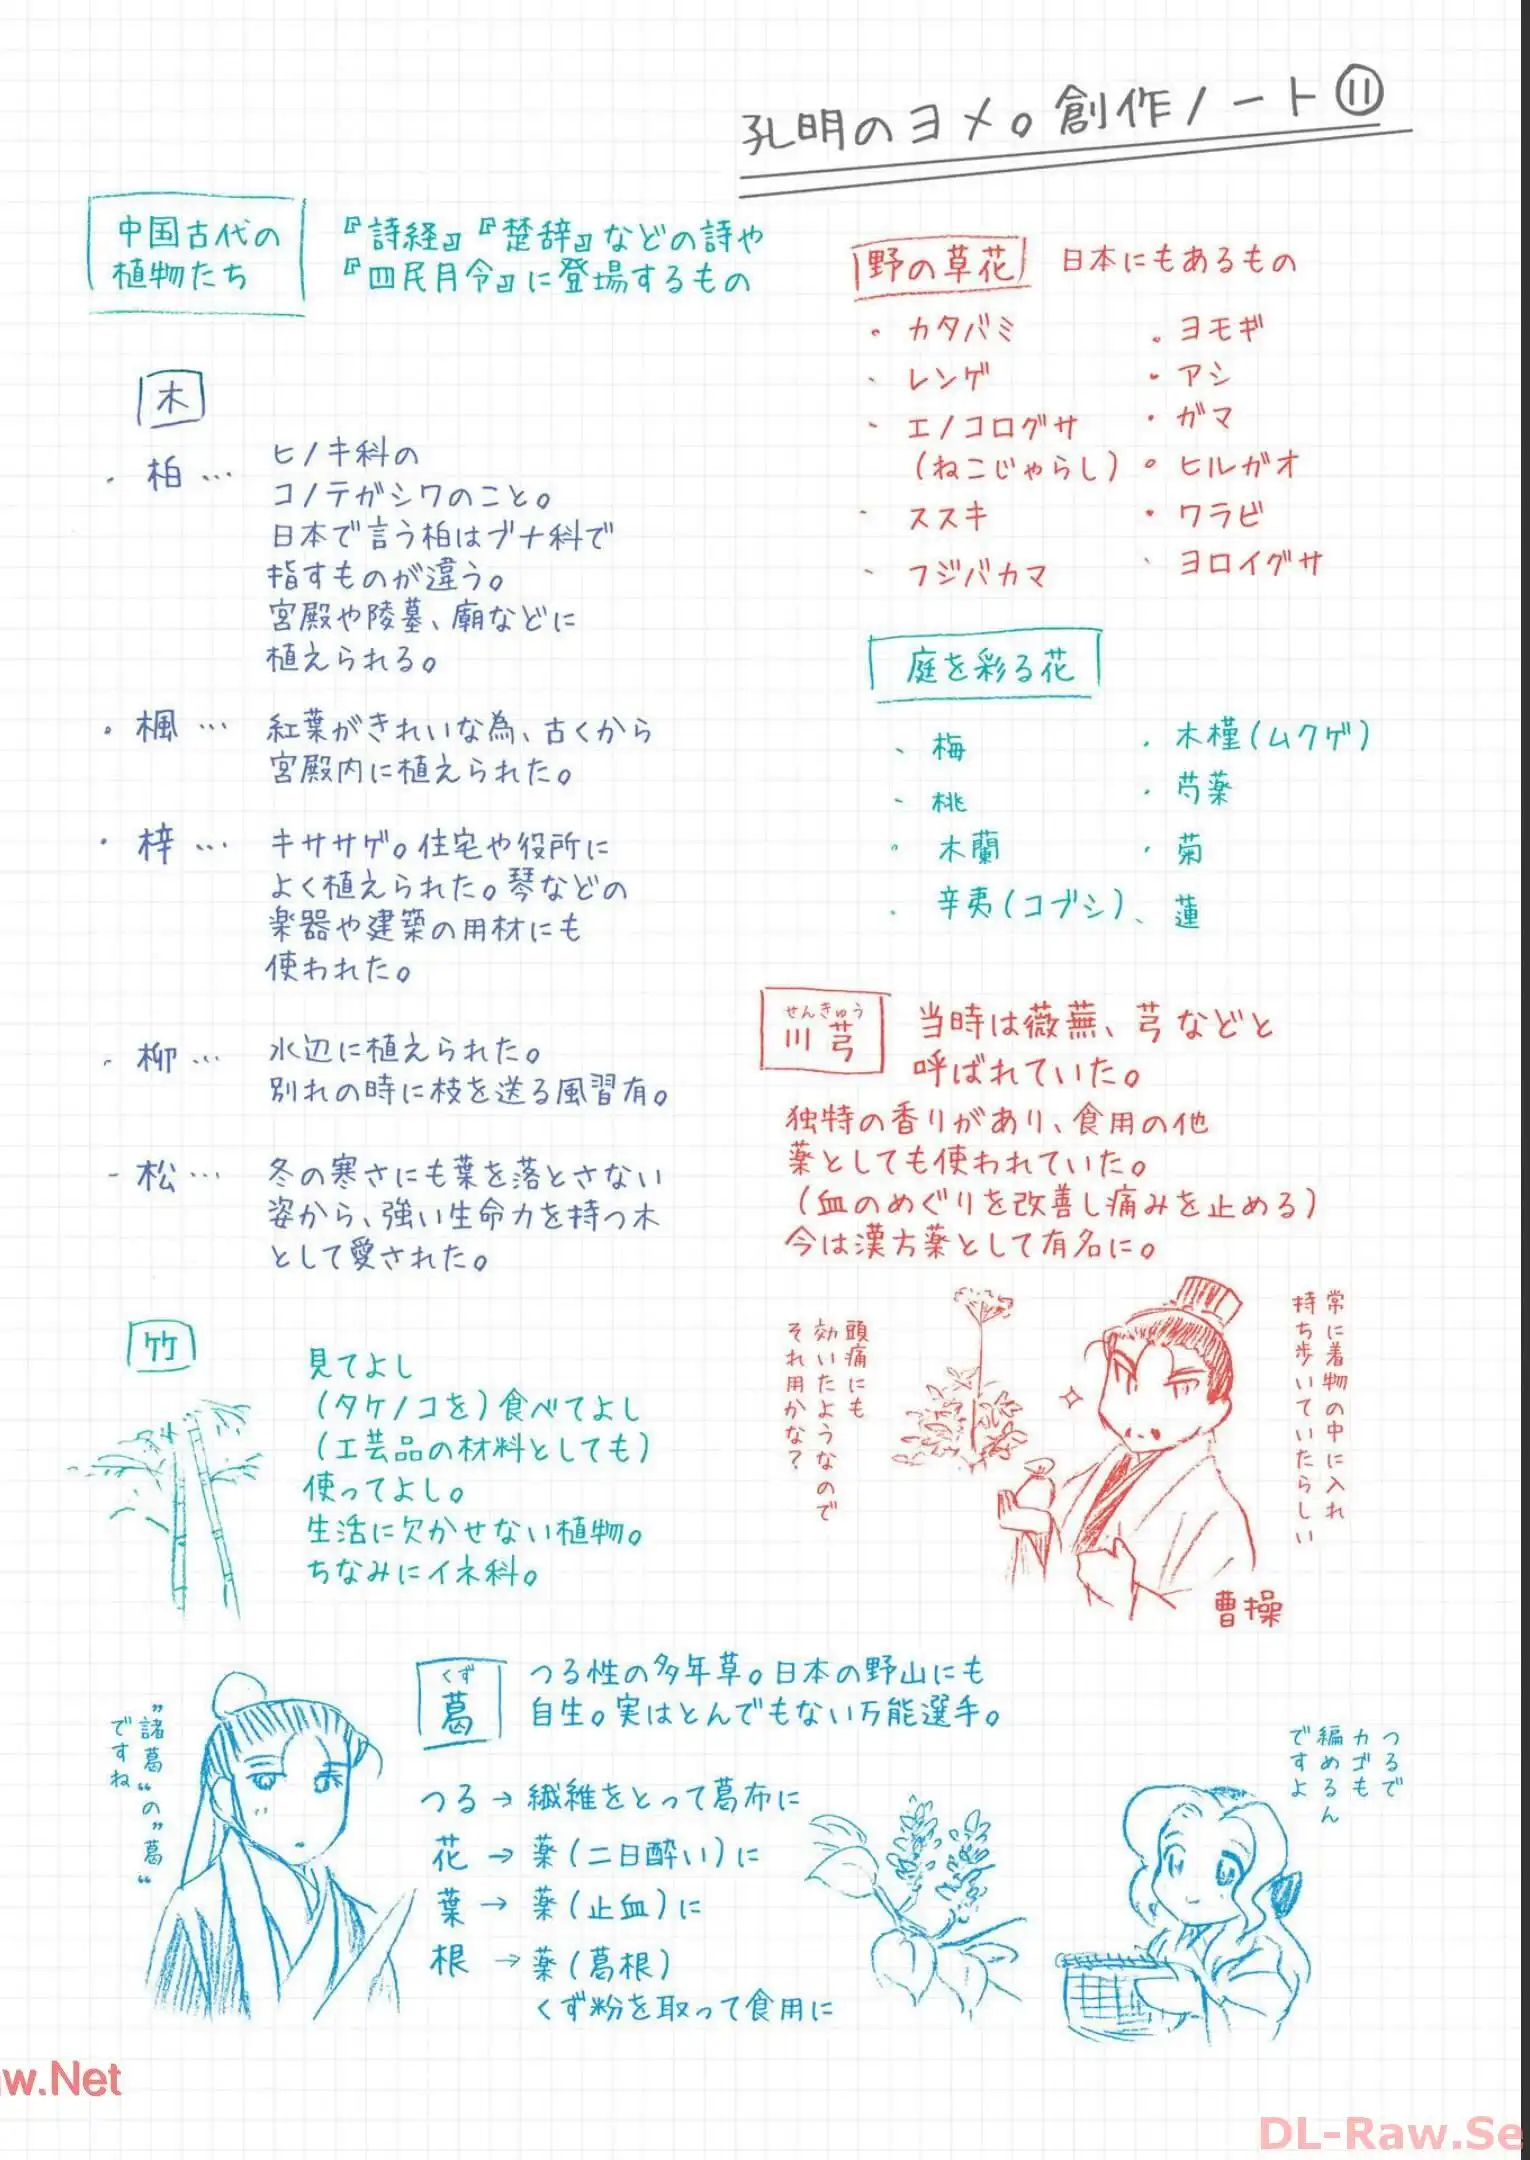 孔明のヨメ。創作ノート⑪
中国古代の
植物たち
『詩経』『楚辞』などの詩や
『四民月令』に登場するもの
木
・柏…
ヒノキ科の
コノテガシワのこと。
日本で言う柏はブナ科で
指すものが違う。
宮殿や陵墓、廟などに
植えられる。
・楓…
紅葉がきれいな為、古くから
宮殿内に植えられた。
・梓…
キササゲ。住宅や役所に
よく植えられた。琴などの
楽器や建築の用材にも
使われた。
・柳…
水辺に植えられた。
別れの時に枝を送る風習有。
・松…
冬の寒さにも葉を落とさない
姿から、強い生命力を持つ木
として愛された。
竹
見てよし
(タケノコを)食べてよし
(工芸品の材料としても)
使ってよし。
生活に欠かせない植物。
ちなみにイネ科。
野の草花
日本にもあるもの
・カタバミ
・レンゲ
・エノコログサ
(ねこじゃらし)
・ススキ
・フジバカマ
・ヨモギ
・アシ
・ガマ
・ヒルガオ
・ワラビ
・ヨロイグサ
庭を彩る花
・梅
・桃
・木蘭
・辛夷(コブシ)
・木槿(ムクゲ)
・芍薬
・菊
・蓮
せんきゅう
川芎
当時は薇蕪、芎などと
呼ばれていた。
独特の香りがあり、食用の他
薬としても使われていた。
(血のめぐりを改善し痛みを止める)
今は漢方薬として有名に。
常に着物の中に入れ
持ち歩いていたらしい
頭痛にも
効いたようなので
それ用かな?
曹操
くず
葛
つる性の多年草。日本の野山にも
自生。実はとんでもない万能選手。
つる→繊維をとって葛布に
花→薬(二日酔い)に
葉→薬(止血)に
根→薬(葛根)
くず粉を取って食用に
"諸葛"の"葛"
ですね
つるで
カゴも
編めるん
ですよ
w.Net
DL-Raw.Se